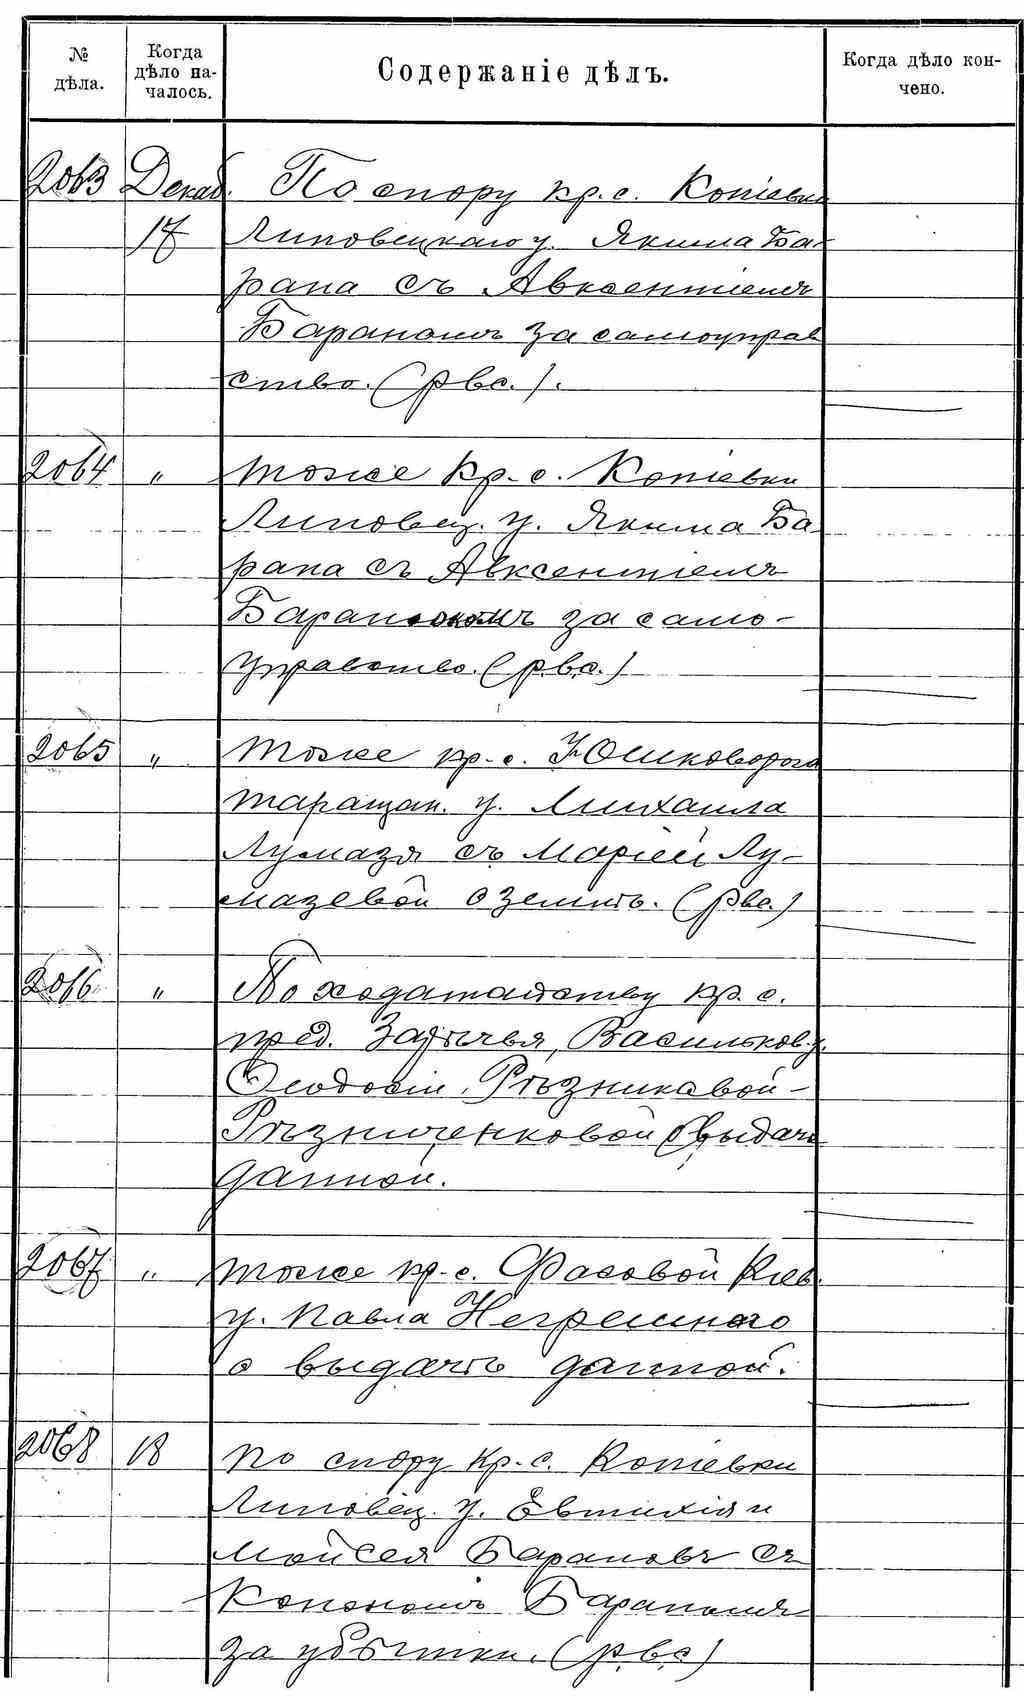 № дѣла. Когда дѣло началось. Содержаніе дѣлъ. Когда дѣло кончено.
2063 Декаб. По спору кр. с. Копіевки
17 Липовецкаго у. Якима Ба-
рана съ Авксентіемъ
Бараномъ за самоуправ
ство. (рвс.).
2064 " тоже кр. с. Копіевки
Липовец. у. Якима Ба
рана съ Авксентіемъ
за само-
управство. (рвс.)
2065 " тоже кр. с. Юшковорога
таращан. у. Михаила
Лумазя съ Маріей Лу-
мазевой о землѣ. (рвс.)
2066 " По ходатайству кр. с.
пред. Зарѣчья, Васильков. у.
Ѳеодосіи Рѣзниковой-
Рѣзниченковой о выдачѣ
данной.
2067 " тоже кр. с. Фасовой Кіев.
у. Павла Негрешнаго
о выдачѣ данной.
2068 18 по спору кр. с. Копіевки
Липовец. у. Евтихія и
Мойсея Барановъ съ
Конономъ Бараномъ
за убытки. (рвс)